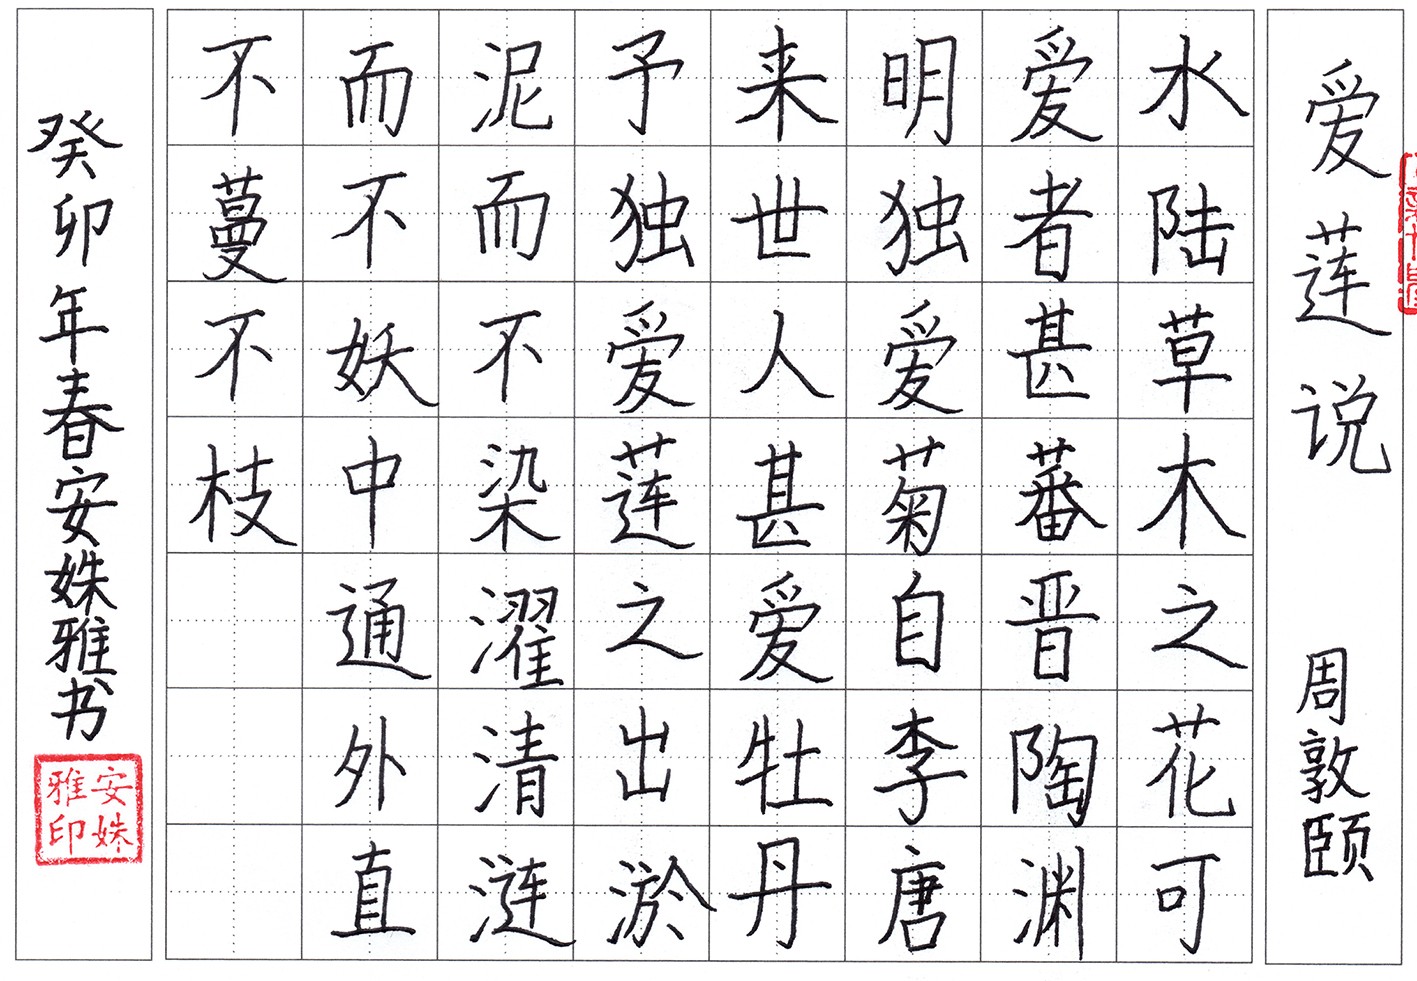 爱莲说 周敦颐
水陆草木之花可
爱者甚蕃晋陶渊
明独爱菊自李唐
来世人甚爱牡丹
予独爱莲之出淤
泥而不染濯清涟
而不妖中通外直
不蔓不枝
癸卯年春安姝雅书
安姝
雅印